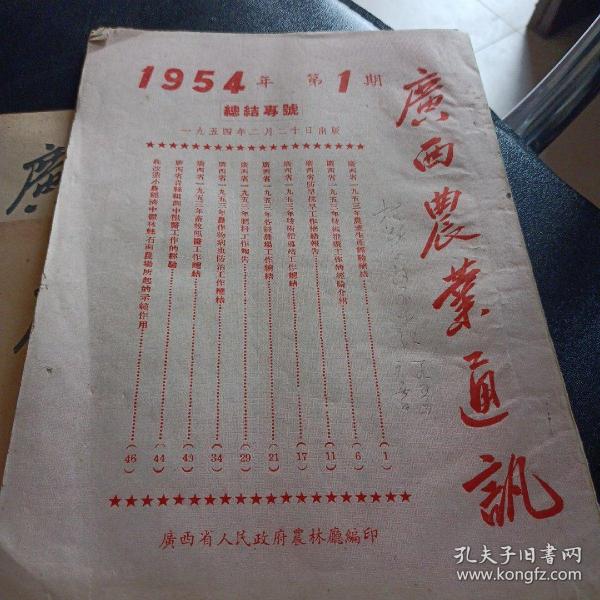 1954年 第1期
總結專號
一九五四年二月二十日出版
廣西農業通訊
廣西省一九五三年農業生產經驗總結(1)
廣西省一九五三年技術推廣工作的經驗介紹(6)
廣西省防旱抗旱工作總結報告(11)
廣西省一九五三年技術指導站工作總結(17)
廣西省一九五三年各級農場工作總結(21)
廣西省一九五三年肥料工作報告(29)
廣西省一九五三年農作物病虫防治工作總結(34)
廣西省一九五三年畜牧獸醫工作總結(43)
工作的經驗(44)
石南農場所起的示範作用(46)
廣西省人民政府農林廳編印
廣
孔夫子旧書网
www.kongfz.com